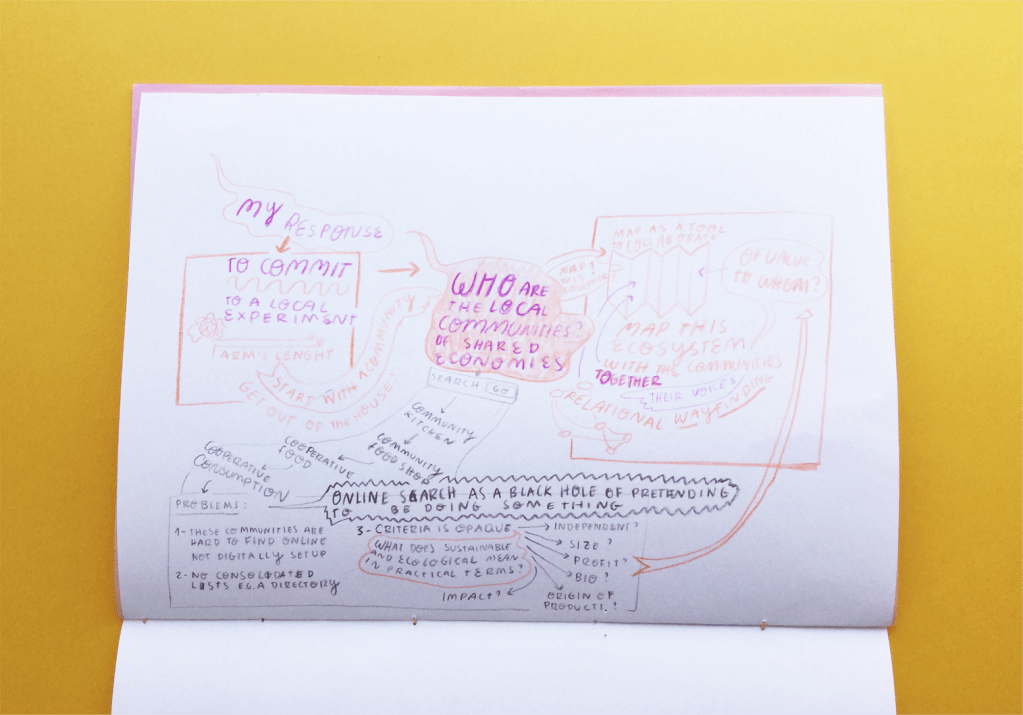 MY RESPONSE
TO COMMIT
TO A LOCAL
EXPERIMENT
1 ARM'S LENGHT
START WITH A COMMUNITY
GET OUT OF THE HOUSE!
WHO ARE
THE LOCAL
COMMUNITIES?
OF SHARED
ECONOMIES
SEARCH GO
COMMUNITY
KITCHEN
COMMUNITY
FOOD SHOP
COOPERATIVE
FOOD
COOPERATIVE
CONSUMPTION
MAP!
THIS
MAP AS A TOOL
TO COLLABORATE
OF VALUE
TO WHOM?
MAP THIS
ECOSYSTEM
WITH THE COMMUNITIES
TOGETHER
THEIR VOICES
RELATIONAL WAYFINDING
ONLINE SEARCH AS A BLACK HOLE OF PRETENDING
TO BE DOING SOMETHING
PROBLEMS:
1- THESE COMMUNITIES ARE
HARD TO FIND ONLINE
NOT DIGITALLY SETUP
2- NO CONSOLIDATED
LISTS EG. A DIRECTORY
3- CRITERIA IS OPAQUE
WHAT DOES SUSTAINABLE
AND ECOLOGICAL MEAN
IN PRACTICAL TERMS?
INDEPENDENT?
SIZE?
PROFIT?
BIO?
ORIGIN OF
PRODUCTS?
IMPACT?